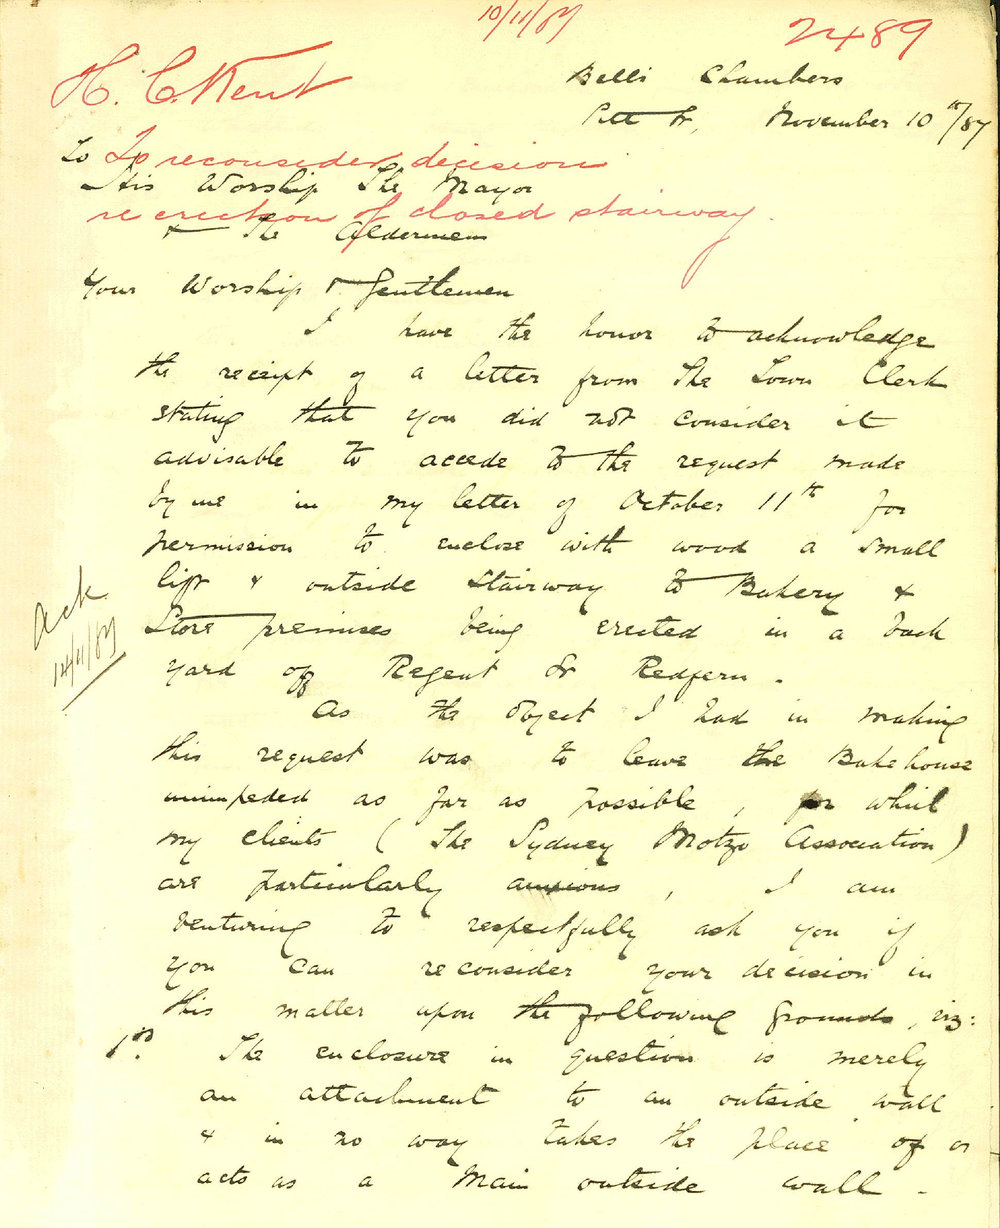 10/11/87
2489
H. C. Kent
Bells Chambers
Pitt St, November 10th/87
To
To reconsider decision
His Worship The Mayor
re erection of closed stairway.
& The Aldermen
Your Worship & Gentlemen
I have the honor to acknowledge
the receipt of a letter from The Town Clerk
stating that you did not consider it
advisable to accede to the request made
by me in my letter of October 11th for
permission to enclose with wood a small
lift & outside stairway to Bakery &
Store premises being erected in a back
yard off Regent St Redfern.
Ack
14/11/87
As the object I had in making
this request was to leave the Bakehouse
unimpeded as far as possible, for which
my clients (The Sydney Motzo Association)
are particularly anxious, I am
venturing to respectfully ask you if
you can reconsider your decision in
this matter upon the following grounds, viz:
1st. The enclosure in question is merely
an attachment to an outside wall
& in no way takes the place of or
acts as a main outside wall.